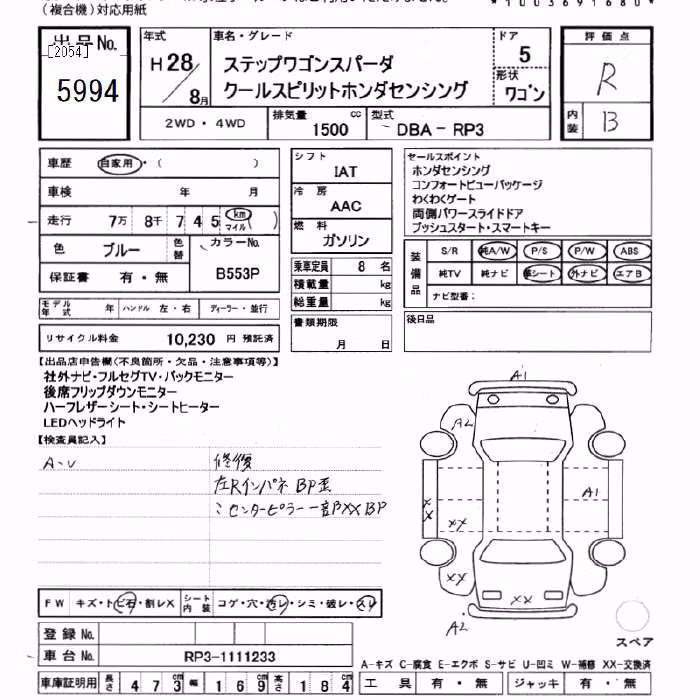 (複合機)対応用紙
*1003691680*
出品No.
[2054]
5994
年式
H28/8月
車名・グレード
ステップワゴンスパーダ
クールスピリットホンダセンシング
ドア
5
形状
ワゴン
評価点
R
内装
B
2WD・4WD
排気量
1500 cc
型式
DBA-RP3
車歴 自家用・( )
車検 年 月
走行 7万 8千 7 4 5 km マイル ( )
色 ブルー
色替
カラーNo.
B553P
保証書 有・無
モデル年式 年
ハンドル 左・右
ディーラー・並行
リサイクル料金 10,230 円 預託済
シフト
IAT
冷房
AAC
燃料
ガソリン
乗車定員 8 名
積載量 kg
総重量 kg
書類期限
月 日
セールスポイント
ホンダセンシング
コンフォートビューパッケージ
わくわくゲート
両側パワースライドドア
プッシュスタート・スマートキー
装備品
S/R 純A/W P/S P/W ABS
純TV 純ナビ 革シート 外ナビ エアB
ナビ型番:
後日品
【出品店申告欄(不良箇所・欠品・注意事項等)】
社外ナビ・フルセグTV・バックモニター
後席フリップダウンモニター
ハーフレザーシート・シートヒーター
LEDヘッドライト
【検査員記入】
A-U
修復
左RインパネBP歪
センターピラー一部BXX BP
A1
A2
A1
XX
XX
XX
XX
A2
スペア
FW キズ・トビ石・割レX
シート内装 コゲ・穴・汚レ・シミ・破レ・スレ
登録No.
車台No. RP3-1111233
A-キズ C-腐食 E-エクボ S-サビ U-凹ミ W-補修 XX-交換済
車庫証明用 長さ 473 cm 幅 169 cm 高さ 184 cm
工具 有・無 ジャッキ 有・無